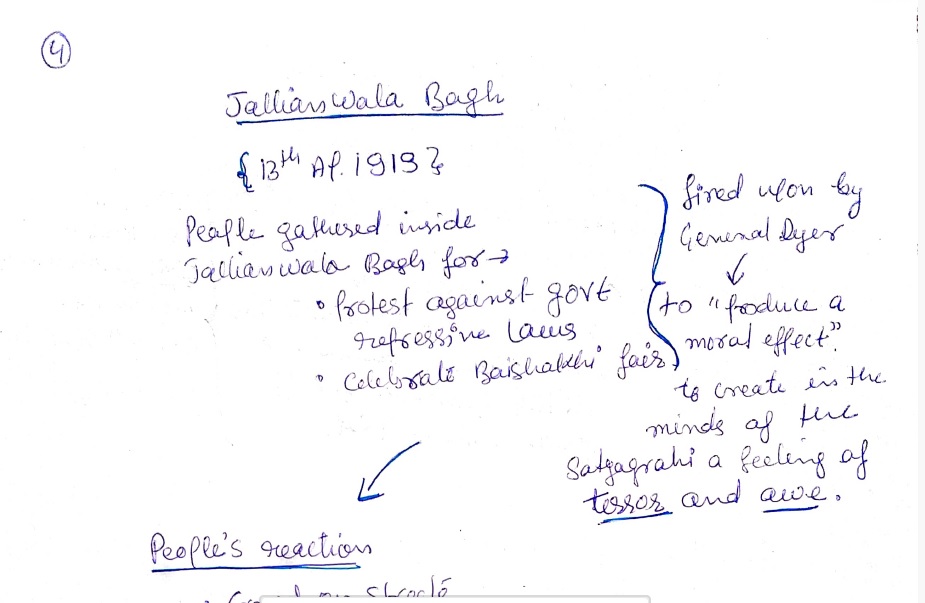 4
Jallianwala Bagh
{13th Ap. 1919}
People gathered inside
Jallianwala Bagh for →
• Protest against govt
repressive laws
• Celebrate Baishakhi fair
fired upon by
General Dyer
↓
to "produce a
moral effect".
to create in the
minds of the
Satyagrahi a feeling of
terror and awe.
People's reaction